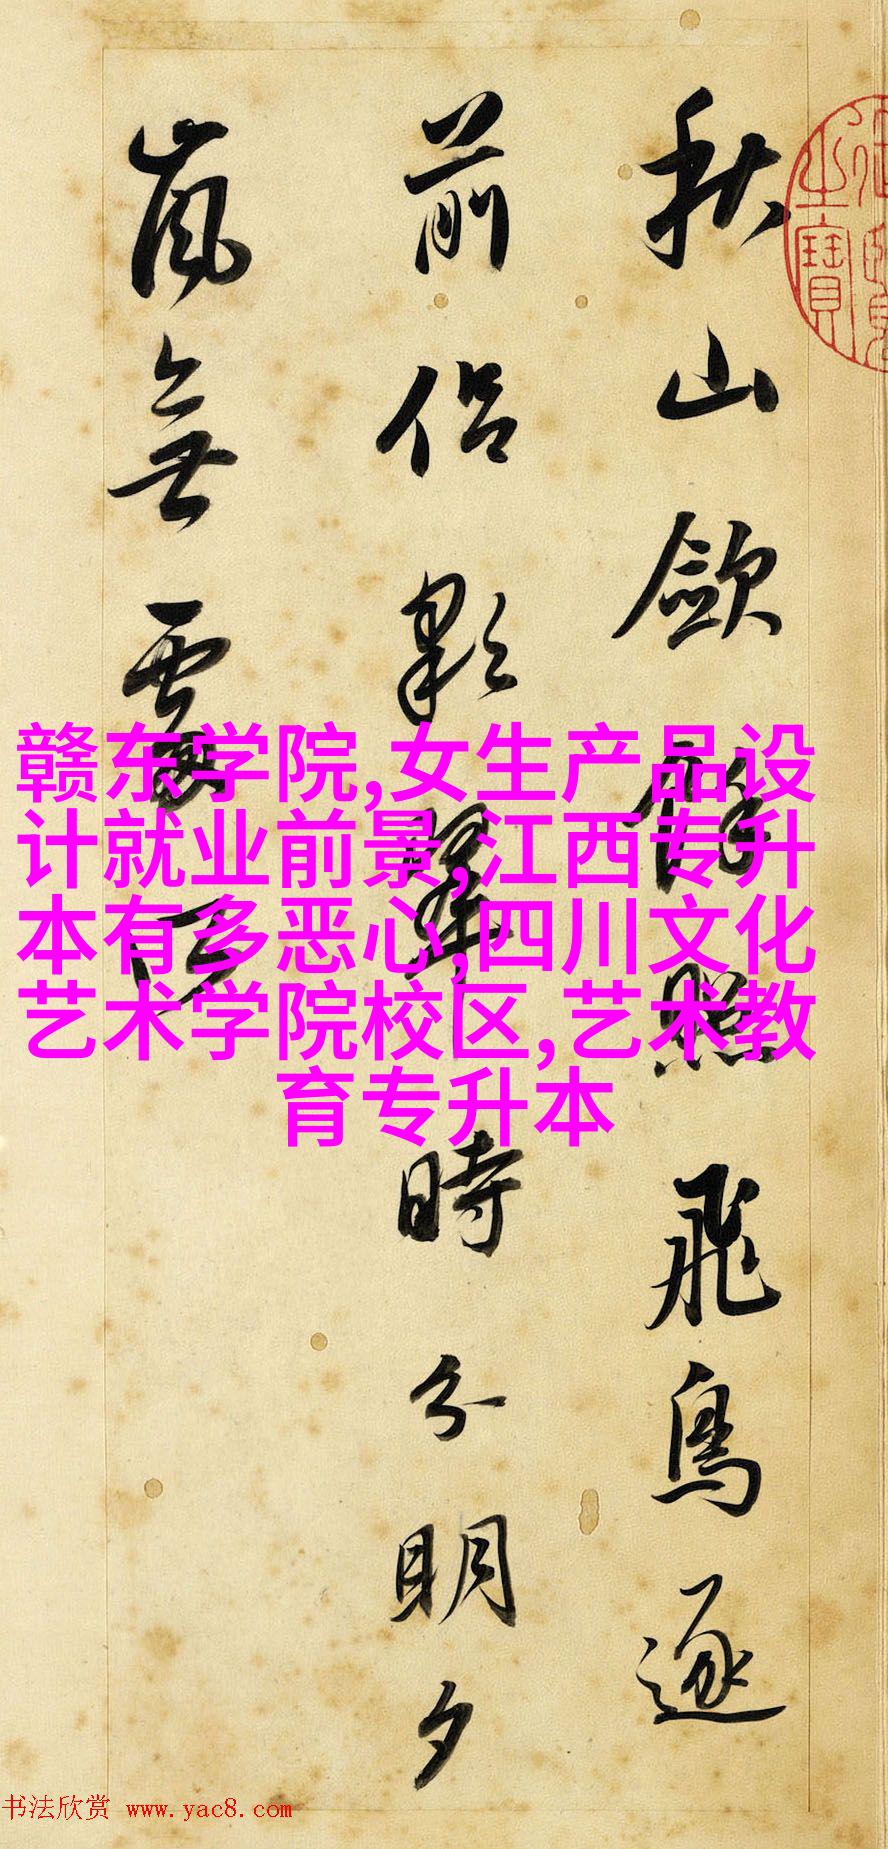 秋山歛餘照飛鳥逐
前侣彩翠時分明夕
嵐無處所
之寶
赣东学院,女生产品设
计就业前景,江西专升
本有多恶心,四川文化
艺术学院校区,艺术教
育专升本
书法欣赏 www.yac8.com